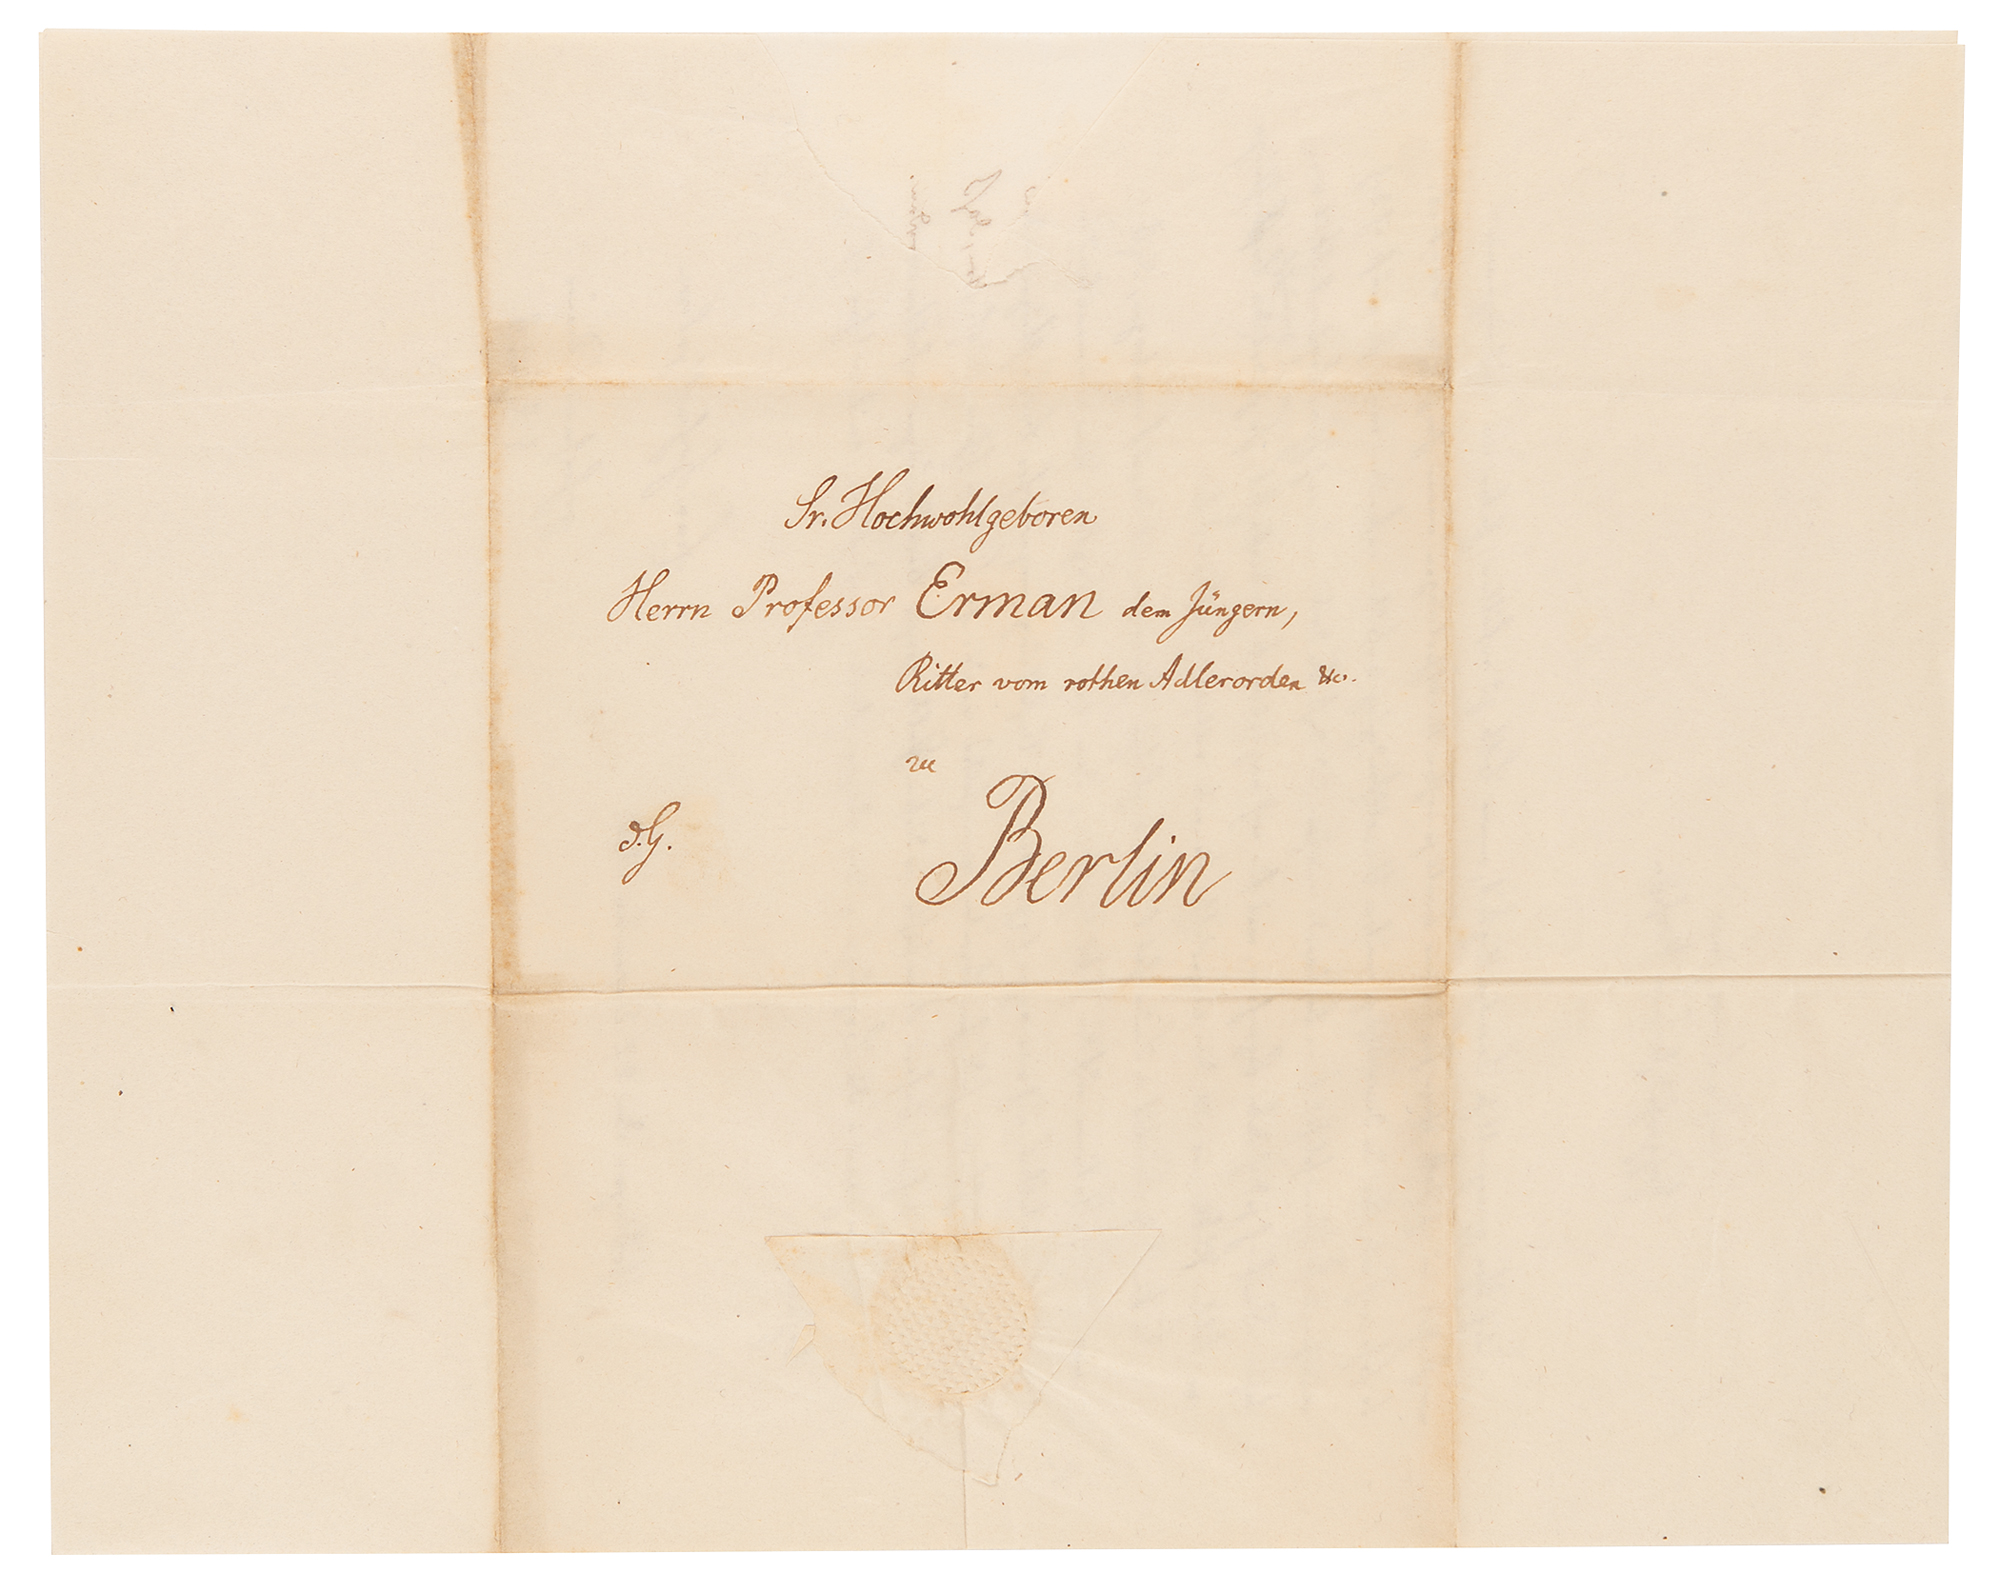 Sr. Hochwohlgeboren
Herrn Professor Erman dem Jüngern,
Ritter vom rothen Adlerorden &c.
zu
d. G.
Berlin